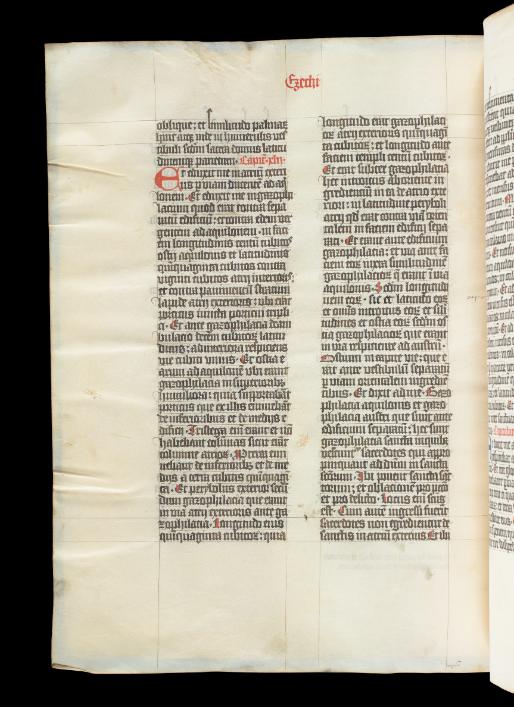 Ezechi
oblique: et similitudo palmarum
hinc atque inde in humerulis vesti
buli secundum latera domus latitu
dinemque parietum. Capitulum xlii.
Et eduxit me in atrium exteri
us per viam ducentem ad aqui
lonem. Et eduxit me in gazophi
lacium quod erat contra sepa
ratum edificium: et contra edem ver
gentem ad aquilonem. in faci
em longitudinis centum cubitos
ostii aquilonis et latitudinis
quinquaginta cubitos contra
viginti cubitos atrii interioris:
et contra pavimentum stratum
lapide atrii exterioris: ubi erat
porticus iuncta porticui tripli
ci. Et ante gazophilacia deam
bulatio decem cubitorum latitu
dinis: ad interiora respiciens
vie cubiti unius. Et ostia e
arum ad aquilonem ubi erant
gazophilacia in superioribus
humiliora: quia supportabant
porticus que ex illis eminebant
de inferioribus et de mediis e
dificii. Tristega enim erant et non
habebant columnas sicut erant
columne atriorum. Propterea emi
nebant de inferioribus et de me
diis a terra cubitis quinquagin
ta. Et peribolus exterior secun
dum gazophilacia que erant
in via atrii exterioris ante ga
zophilacia. Longitudo eius
quinquaginta cubitorum: quia
longitudo erat gazophilacio
rum atrii exterioris quinquagin
ta cubitorum: et longitudo ante
faciem templi centum cubitorum.
Et erat subter gazophilacia
hec introitus ab oriente in
gredientium in ea de atrio exte
riori: in latitudine peribuli
atrii quod erat contra viam orien
talem in faciem edificii sepa
rati. Et erant ante edificium
gazophilacia: et via ante fa
ciem eorum iuxta similitudinem
gazophilaciorum que erant in via
aquilonis. Secundum longitudi
nem eorum. sic et latitudo eorum
et omnis introitus eorum et simi
litudines et ostia eorum secundum os
tia gazophilaciorum que erant
in via respiciente ad austrum.
Ostium in capite vie: que e
rat ante vestibulum separatum
per viam orientalem ingredien
tibus. Et dixit ad me. Gazo
philacia aquilonis et gazo
philacia austri que sunt ante
edificium separatum: hec sunt
gazophilacia sancta in quibus
vescuntur sacerdotes qui appro
pinquant ad dominum in sancta
sanctorum. Ibi ponent sancta sanc
torum: et oblationem pro peccato
et pro delicto. Locus enim sanctus
est. Cum autem ingressi fuerint
sacerdotes non egredientur de
sanctis in atrium exterius et ibi